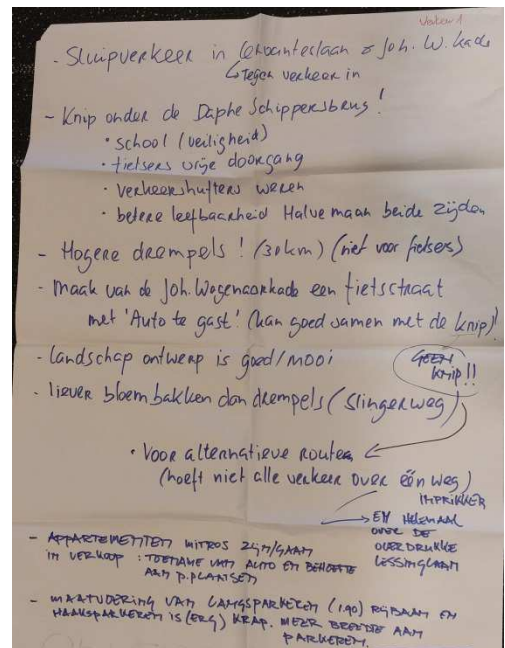 Verkeer 1
- Sluipverkeer in Cervanteslaan & Joh. W. Kade
↳ tegen verkeer in
- Knip onder de Daphe Schippersbrug!
• school (veiligheid)
• fietsers vrije doorgang
• verkeershufters weren
• betere leefbaarheid Halve maan beide zijden
- Hogere drempels! (30km) (niet voor fietsers)
- Maak van de Joh. Wagenaarkade een fietsstraat
met 'Auto te gast'. (kan goed samen met de knip)!
- landschap ontwerp is goed/mooi
GEEN
KNIP!!
- liever bloembakken dan drempels (slingerweg)
• Voor alternatieve routes
(hoeft niet alle verkeer over één weg)
IMPRIKKER
→ EN HELEMAAL
OVER DE
OVERDRUKKE
LESSINGLAAN
- APPARTEMENTEN MITROS ZIJN/GAAN
IN VERKOOP: TOENAME VAN AUTO EN BEHOEFTE
AAN P.PLAATSEN
- MAATVOERING VAN LANGSPARKEREN (1.90) RIJBAAN EN
HAAKSPARKEREN IS (ERG) KRAP. MEER BREEDTE AAN
PARKEREN.